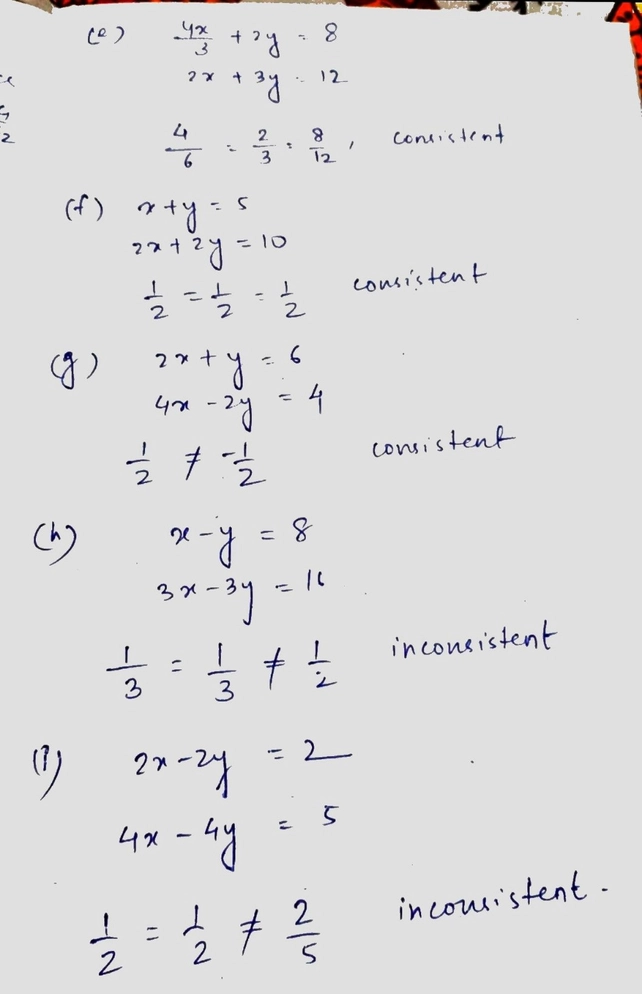 (e) 4x/3 + 2y = 8
2x + 3y = 12
4/6 = 2/3 = 8/12, consistent
(f) x+y = 5
2x + 2y = 10
1/2 = 1/2 = 1/2 consistent
(g) 2x + y = 6
4x - 2y = 4
1/2 ≠ -1/2 consistent
(h) x-y = 8
3x - 3y = 16
1/3 = 1/3 ≠ 1/2 inconsistent
(i) 2x-2y = 2
4x - 4y = 5
1/2 = 1/2 ≠ 2/5 inconsistent.